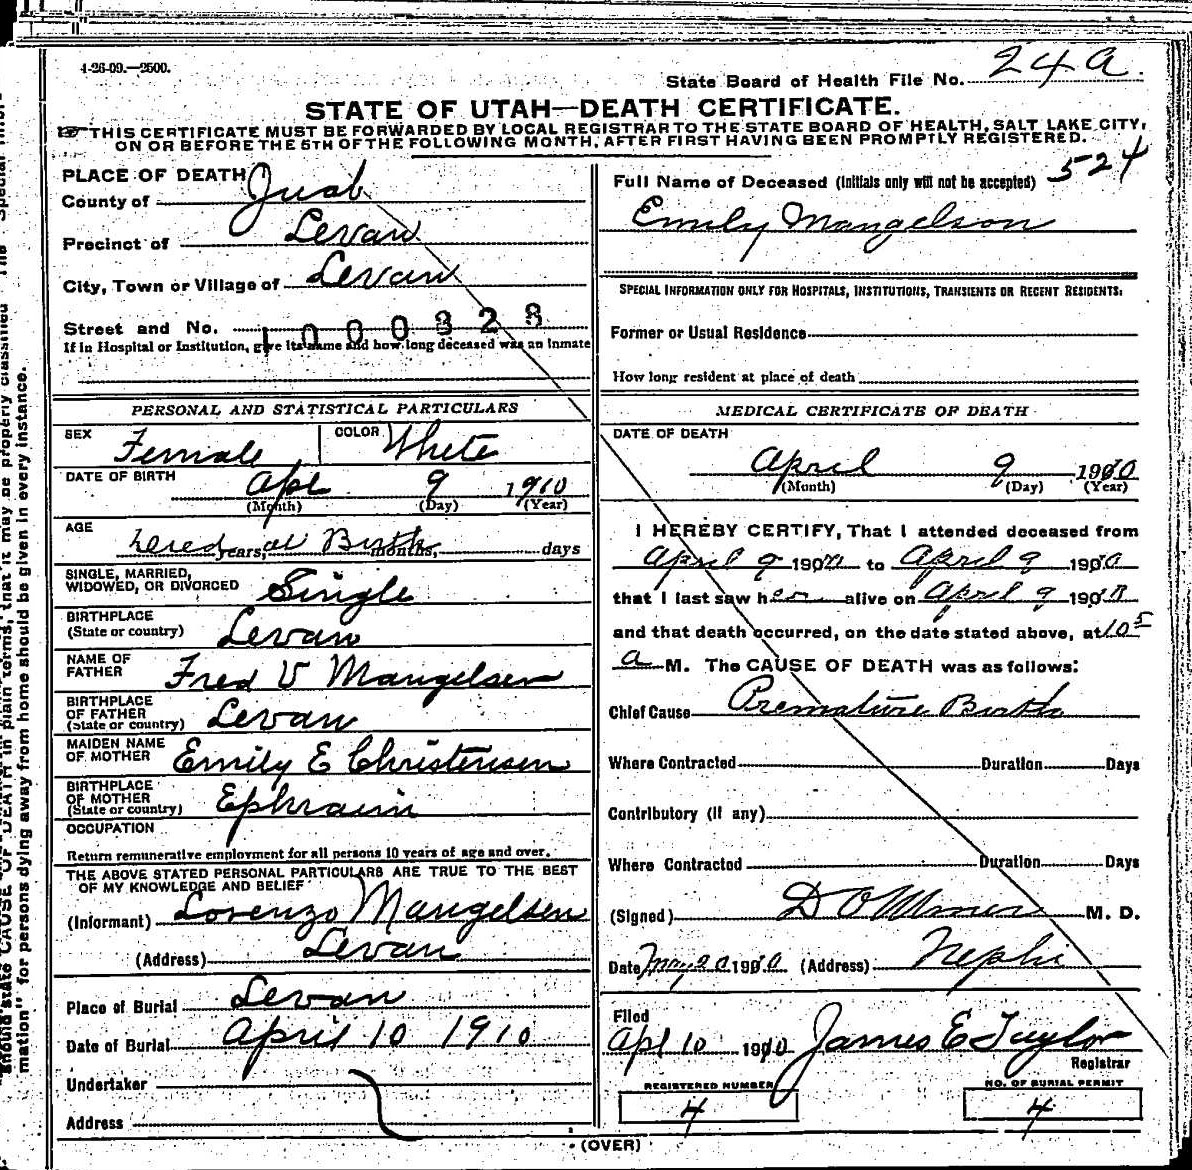 4-26-09.—2500.
State Board of Health File No. 24a.
STATE OF UTAH—DEATH CERTIFICATE.
THIS CERTIFICATE MUST BE FORWARDED BY LOCAL REGISTRAR TO THE STATE BOARD OF HEALTH, SALT LAKE CITY,
ON OR BEFORE THE 5TH OF THE FOLLOWING MONTH, AFTER FIRST HAVING BEEN PROMPTLY REGISTERED.
524
PLACE OF DEATH
County of Juab
Precinct of Levan
City, Town or Village of Levan
Street and No.
1000328
If in Hospital or Institution, give its name and how long deceased was an inmate
PERSONAL AND STATISTICAL PARTICULARS
SEX Female COLOR White
DATE OF BIRTH Apl 9 1910
(Month) (Day) (Year)
AGE years, at Birth months, days
SINGLE, MARRIED,
WIDOWED, OR DIVORCED Single
BIRTHPLACE
(State or country) Levan
NAME OF
FATHER Fred V Mangelsen
BIRTHPLACE
OF FATHER
(State or country) Levan
MAIDEN NAME
OF MOTHER Emily E Christensen
BIRTHPLACE
OF MOTHER
(State or country) Ephraim
OCCUPATION
Return remunerative employment for all persons 10 years of age and over.
THE ABOVE STATED PERSONAL PARTICULARS ARE TRUE TO THE BEST
OF MY KNOWLEDGE AND BELIEF
(Informant) Lorenzo Mangelsen
(Address) Levan
Place of Burial Levan
Date of Burial April 10 1910
Undertaker
Address
Full Name of Deceased (Initials only will not be accepted)
Emily Mangelson
SPECIAL INFORMATION ONLY FOR HOSPITALS, INSTITUTIONS, TRANSIENTS OR RECENT RESIDENTS:
Former or Usual Residence
How long resident at place of death
MEDICAL CERTIFICATE OF DEATH
DATE OF DEATH
April 9 1910
(Month) (Day) (Year)
I HEREBY CERTIFY, That I attended deceased from
April 9 1910 to April 9 1910
that I last saw her alive on April 9 1910
and that death occurred, on the date stated above, at 10 5
a M. The CAUSE OF DEATH was as follows:
Chief Cause Premature Birth
Where Contracted Duration Days
Contributory (if any)
Where Contracted Duration Days
(Signed) D O Miner M. D.
Date May 20 1910 (Address) Nephi
Filed
Apl 10 1910 James E Taylor
Registrar
REGISTERED NUMBER
4
NO. OF BURIAL PERMIT
4
(OVER)
should state CAUSE OF DEATH in plain terms, that it may be properly classified The "Special Infor-
mation" for persons dying away from home should be given in every instance.